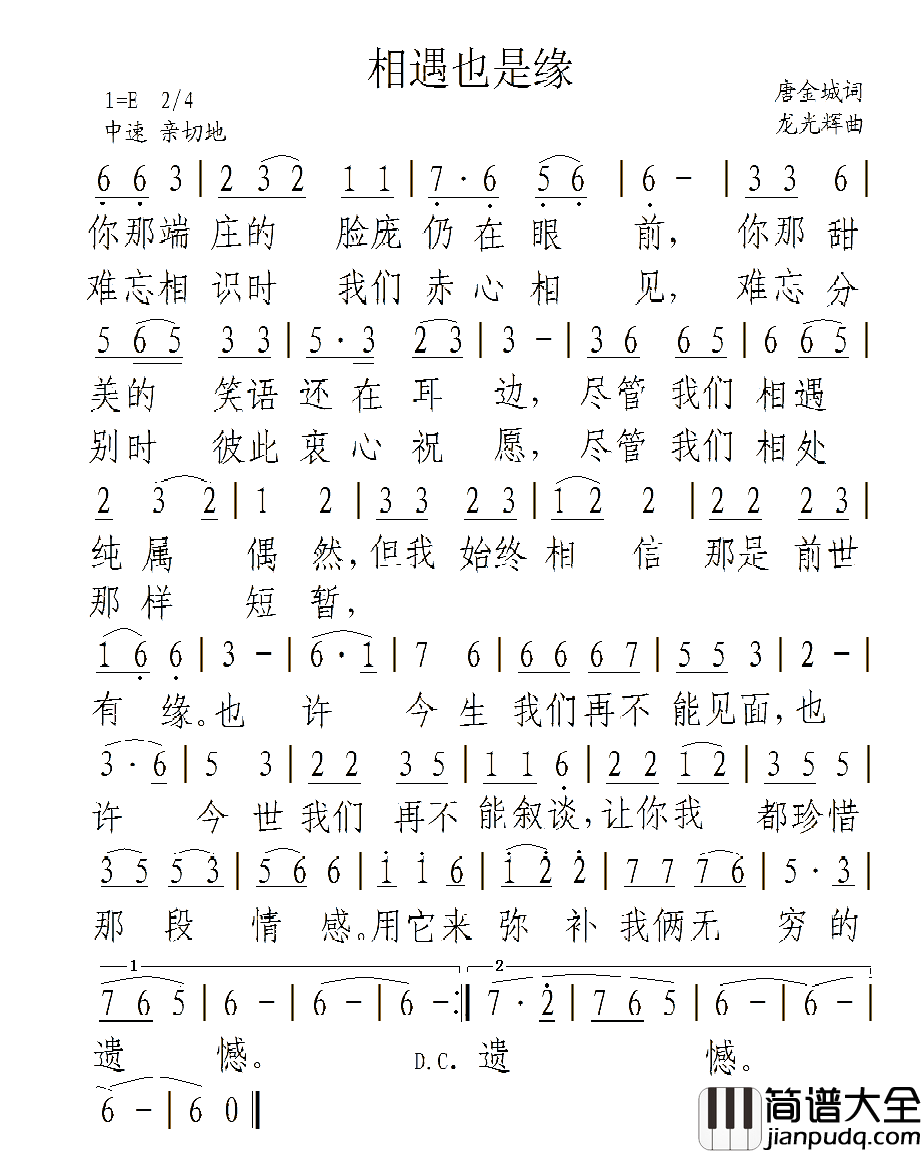 相遇也是缘
1=E 2/4
唐金城词
中速 亲切地
龙光辉曲
6 6 3 | 2 3 2 1 1 | 7 · 6 5 6 | 6 - | 3 3 6 |
你那端 庄的 脸庞 仍在眼 前, 你那 甜
难忘相 识时 我们 赤心相 见, 难忘 分
5 6 5 3 3 | 5 · 3 2 3 | 3 - | 3 6 6 5 | 6 6 5 |
美的 笑语 还在耳 边, 尽管 我们 相遇
别时 彼此 衷心祝 愿, 尽管 我们 相处
2 3 2 | 1 2 | 3 3 2 3 | 1 2 2 | 2 2 2 3 |
纯属 偶然, 但我 始终 相信 那是 前世
那样 短暂,
1 6 6 | 3 - | 6 · 1 | 7 6 | 6 6 6 7 | 5 5 3 | 2 - |
有缘。也许 今生 我们再不 能见面, 也
3 · 6 | 5 3 | 2 2 3 5 | 1 1 6 | 2 2 1 2 | 3 5 5 |
许 今世 我们 再不 能叙谈, 让你我 都珍惜
3 5 5 3 | 5 6 6 | 1 1 6 | 1 2 2 | 7 7 7 6 | 5 · 3 |
那段 情感。用它来 弥补 我俩无 穷的
1 2
7 6 5 | 6 - | 6 - | 6 - :‖ 7 · 2 | 7 6 5 | 6 - | 6 - |
遗 憾。 D.C. 遗 憾。
6 - | 6 0 ‖
简谱大全
jianpudq.com